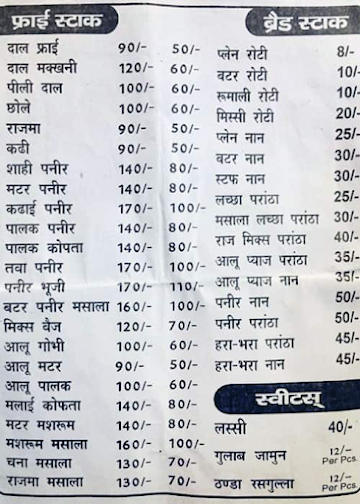 फ्राई स्टाक
दाल फ्राई 90/- 50/-
दाल मक्खनी 120/- 60/-
पीली दाल 100/- 60/-
छोले 100/- 60/-
राजमा 90/- 50/-
कढी 90/- 50/-
शाही पनीर 140/- 80/-
मटर पनीर 140/- 80/-
कढाई पनीर 170/- 100/-
पालक पनीर 140/- 80/-
पालक कोपता 140/- 80/-
तवा पनीर 170/- 100/-
पनीर भूजी 170/- 110/-
बटर पनीर मसाला 160/- 100/-
मिक्स वैज 120/- 70/-
आलू गोभी 100/- 60/-
आलू मटर 90/- 50/-
आलू पालक 100/- 60/-
मलाई कोफता 140/- 80/-
मटर मशरूम 140/- 80/-
मशरूम मसाला 160/- 100/-
चना मसाला 130/- 70/-
राजमा मसाला 130/- 70/-
ब्रैड स्टाक
प्लेन रोटी 8/-
बटर रोटी 10/-
रूमाली रोटी 10/-
मिस्सी रोटी 20/-
प्लेन नान 25/-
बटर नान 30/-
स्टफ नान 30/-
लच्छा परांठा 25/-
मसाला लच्छा परांठा 30/-
राज मिक्स परांठा 40/-
आलू प्याज परांठा 35/-
आलू प्याज नान 35/-
पनीर नान 50/-
पनीर परांठा 50/-
हरा-भरा परांठा 45/-
हरा-भरा नान 45/-
स्वीटस्
लस्सी 40/-
गुलाब जामुन 12/- Per Pcs.
ठण्डा रसगुल्ला 12/- Per Pcs.